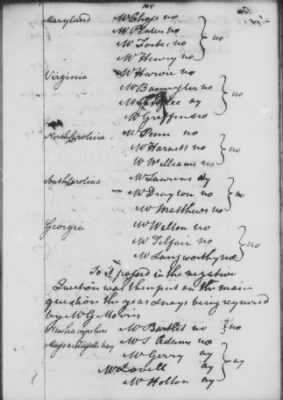 Maryland Mr Chase no
Mr Plater no
Mr Forbes no } no
Mr Henry no
Virginia Mr Harvie no
Mr Bannister no
Mr Lee ay } no
Mr Griffin no
North Carolina Mr Penn no
Mr Harnett no } no
Mr Williams no
South Carolina Mr Laurens ay
Mr Drayton no } no
Mr Matthews no
Georgia Mr Walton no
Mr Telfair no } no
Mr Langworthy no
So it passed in the negative
Question was then put on the main
question the yeas & nays being required
by Mr G Morris
New hampshire Mr Bartlet no } no
Massachusetts bay Mr S Adams no
Mr Gerry ay
Mr Lovell ay } ay
Mr Holten ay